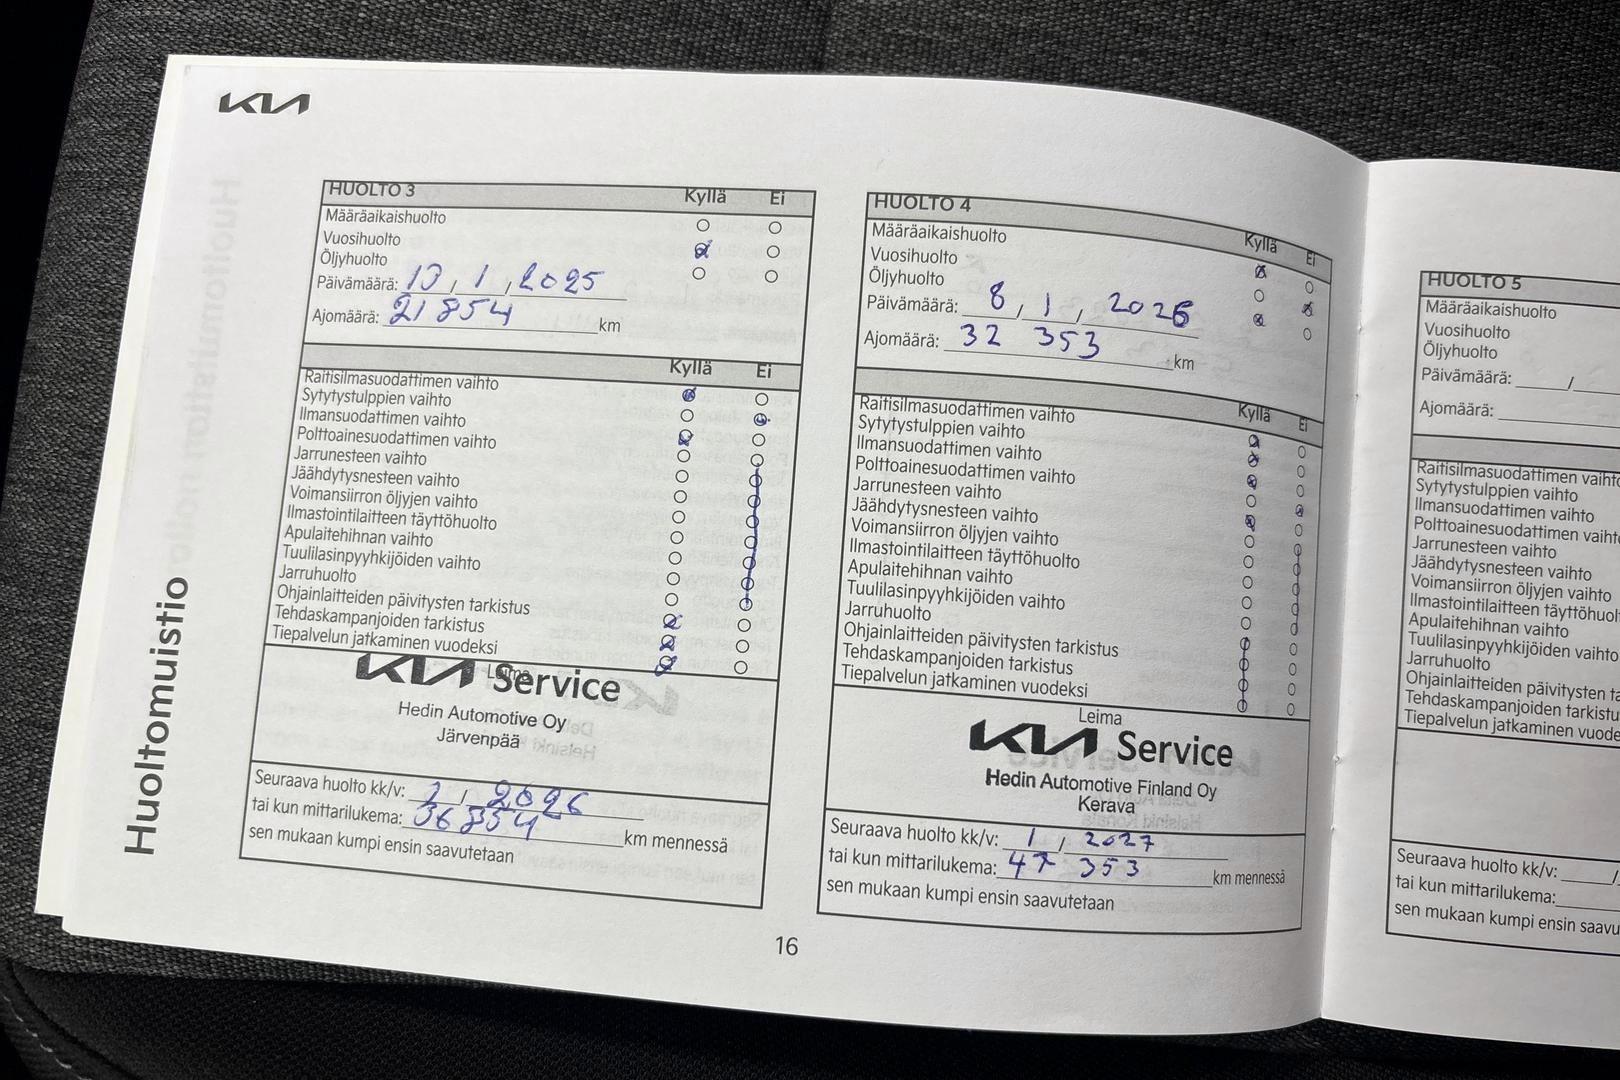 KIA
Huoltomuistio
HUOLTO 3 Kyllä Ei
Määräaikaishuolto
Vuosihuolto
Öljyhuolto
Päivämäärä: 10 / 1 / 2025
Ajomäärä: 21 854 km
Kyllä Ei
Raitisilmasuodattimen vaihto
Sytytystulppien vaihto
Ilmansuodattimen vaihto
Polttoainesuodattimen vaihto
Jarrunesteen vaihto
Jäähdytysnesteen vaihto
Voimansiirron öljyjen vaihto
Ilmastointilaitteen täyttöhuolto
Apulaitehihnan vaihto
Tuulilasinpyyhkijöiden vaihto
Jarruhuolto
Ohjainlaitteiden päivitysten tarkistus
Tehdaskampanjoiden tarkistus
Tiepalvelun jatkaminen vuodeksi
Leima
KIA Service
Hedin Automotive Oy
Järvenpää
Seuraava huolto kk/v: 1 / 2026
tai kun mittarilukema: 36 854 km mennessä
sen mukaan kumpi ensin saavutetaan
HUOLTO 4 Kyllä Ei
Määräaikaishuolto
Vuosihuolto
Öljyhuolto
Päivämäärä: 8 / 1 / 2026
Ajomäärä: 32 353 km
Kyllä Ei
Raitisilmasuodattimen vaihto
Sytytystulppien vaihto
Ilmansuodattimen vaihto
Polttoainesuodattimen vaihto
Jarrunesteen vaihto
Jäähdytysnesteen vaihto
Voimansiirron öljyjen vaihto
Ilmastointilaitteen täyttöhuolto
Apulaitehihnan vaihto
Tuulilasinpyyhkijöiden vaihto
Jarruhuolto
Ohjainlaitteiden päivitysten tarkistus
Tehdaskampanjoiden tarkistus
Tiepalvelun jatkaminen vuodeksi
Leima
KIA Service
Hedin Automotive Finland Oy
Kerava
Seuraava huolto kk/v: 1 / 2027
tai kun mittarilukema: 47 353 km mennessä
sen mukaan kumpi ensin saavutetaan
16
HUOLTO 5
Määräaikaishuolto
Vuosihuolto
Öljyhuolto
Päivämäärä: /
Ajomäärä:
Raitisilmasuodattimen vaihto
Sytytystulppien vaihto
Ilmansuodattimen vaihto
Polttoainesuodattimen vaiht
Jarrunesteen vaihto
Jäähdytysnesteen vaihto
Voimansiirron öljyjen vaihto
Ilmastointilaitteen täyttöhuol
Apulaitehihnan vaihto
Tuulilasinpyyhkijöiden vaihto
Jarruhuolto
Ohjainlaitteiden päivitysten ta
Tehdaskampanjoiden tarkistu
Tiepalvelun jatkaminen vuode
Seuraava huolto kk/v: /
tai kun mittarilukema:
sen mukaan kumpi ensin saavu